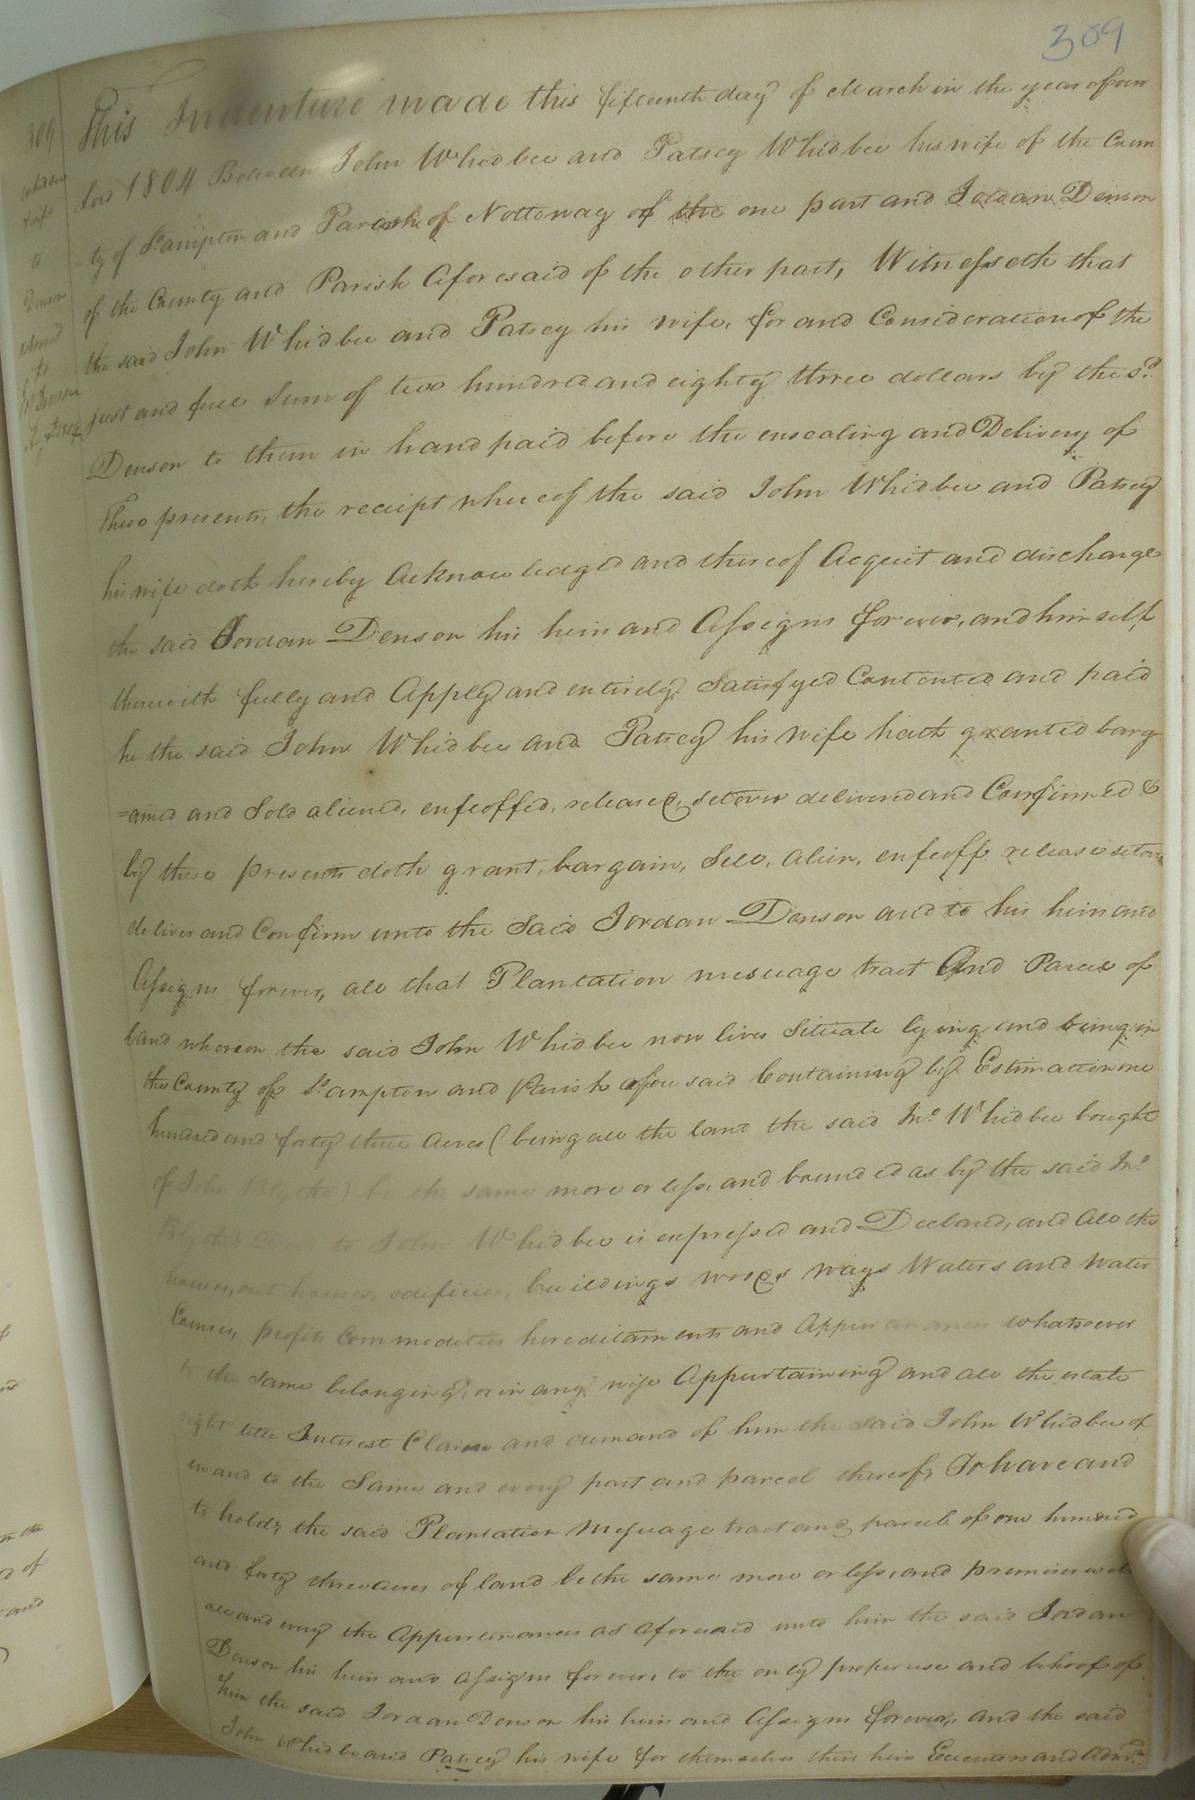 309
This Indenture made this fifteenth day of March in the year of our
Lord 1804 Between John Whidbee and Patsey Whidbee his wife of the Coun
-ty of S.ampton and Parish of Nottoway of the one part and Jordan Denson
of the County and Parish Aforesaid of the other part, Witnesseth that
the said John Whidbee and Patsey his wife, for and Consideration of the
just and full Sum of two hundred and eighty three dollars by the sd.
Denson to them in hand paid before the ensealing and Delivery of
These presents, the receipt whereof the said John Whidbee and Patsey
his wife doth hereby Acknowledged and thereof Acquit and discharge
the said Jordan Denson his heirs and Assigns forever, and himself
therewith fully and Apply and entirely Satisfyed Contented and paid
he the said John Whidbee and Patsey his Wife hath granted barg
=ained and Sold aliened, enfeoffed, released, setover delivered and Confirmed &
by these presents doth grant, bargain, Sell, alien, enfeoff release setover
deliver and Confirm unto the Said Jordan Denson and to his heirs and
Assigns forever, all that Plantation mesuage tract And Parcel of
land whereon the said John Whidbee now lives Situate lying and being in
the County of S.ampton and Parish afore said Containing by Estimation one
hundred and forty three Acres (being all the land the said Jno. Whidbee bought
of John be the same more or less, and bounded as by the said Jno.
to John Whidbee is expressed and Declared, and All the
houses, out houses, edificies, buildings woods ways Waters and Water
Courses, profits Commodities hereditaments and Appurtanances whatsoever
to the Same belonging, or in any wise Appurtaining and all the estate
right title Interest Claim and demand of him the said John Whidbee of
in and to the Same and every part and parcel thereof, To have and
to hold, the said Plantation Messuage tract and parcel of one hundred
and forty three acres of land be the same more or less, and premises with
all and every the Appurtenances as aforesaid unto him the said Jordan
Denson his heirs and assigns forever, to the only proper use and behoof of
him the said Jordan Denson his heirs and Assigns forever, and the said
John Whidbee and Patsey his wife for themselves their heirs Executors and Admrs.
309
Whidbee
& wife
to
Denson
to